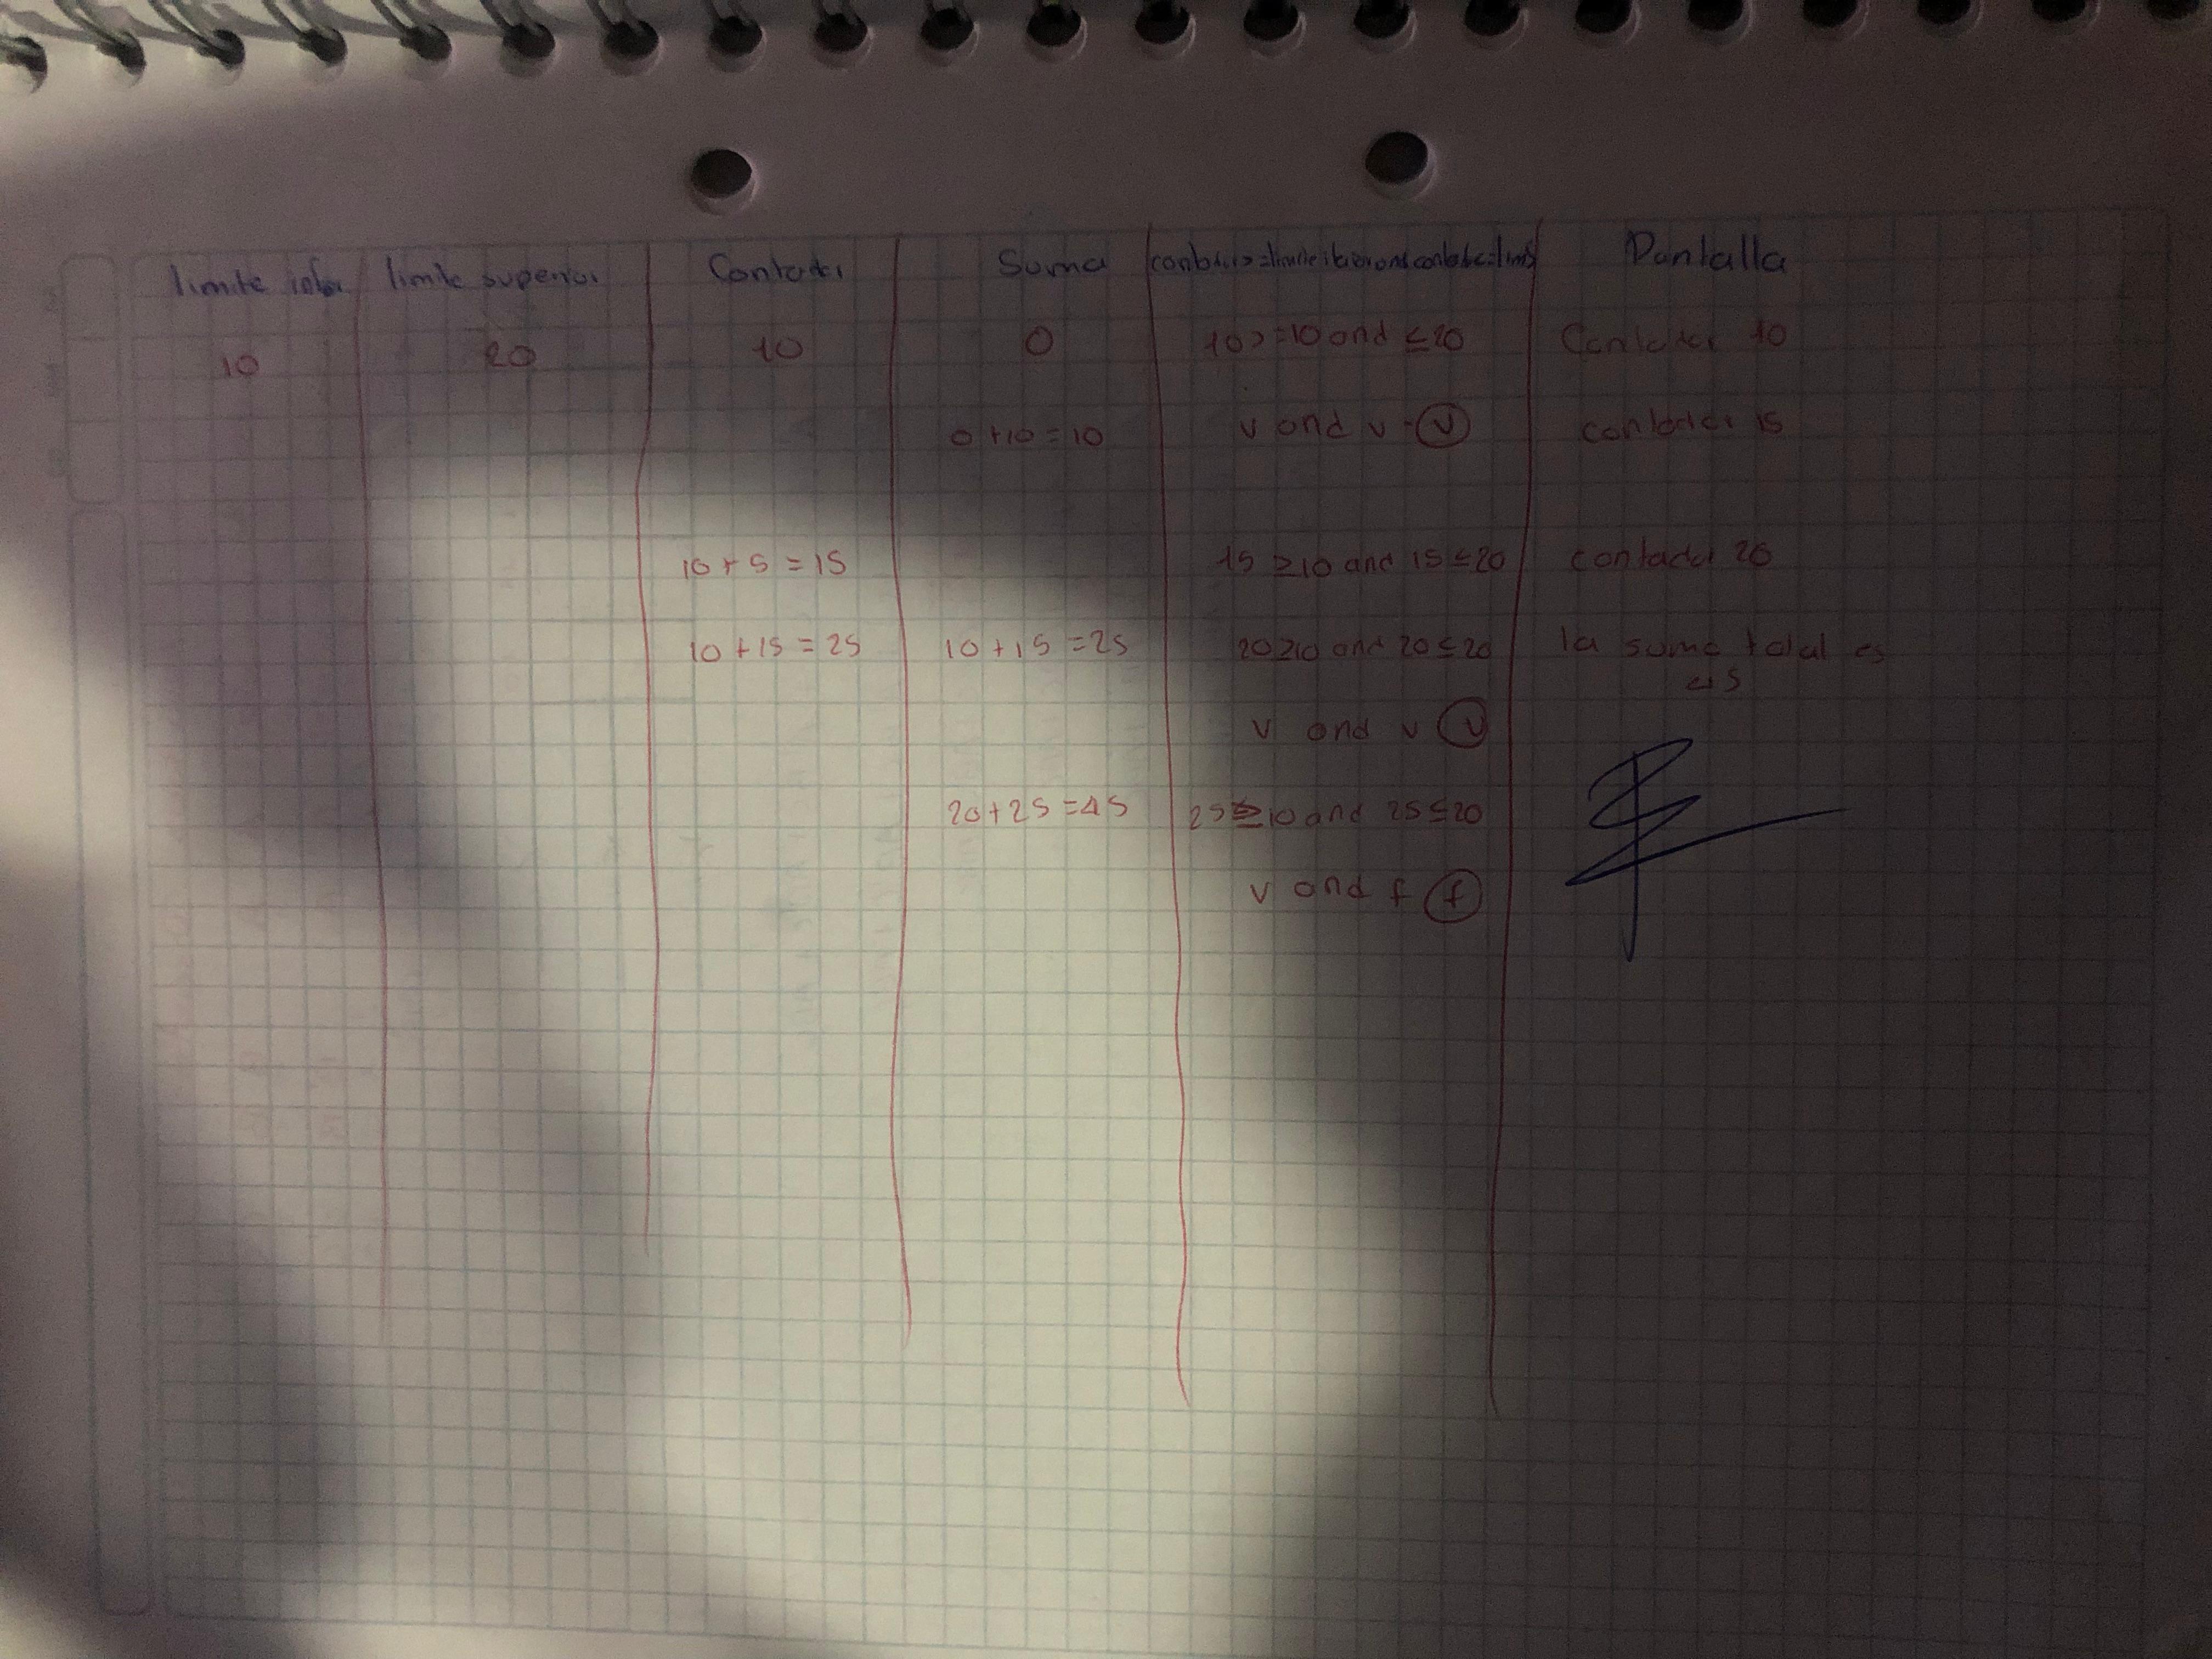 limite infer limite superior Contador Suma contador>=limiteinferior and contador<=limS Pantalla
10 20 10 0 10>=10 and ≤20 Contador 10
0+10=10 v and v = v contador 15
10+5=15 15≥10 and 15≤20 contador 20
10+15=25 10+15=25 20≥10 and 20≤20 la suma total es
45
v and v v
20+25=45 25≥10 and 25≤20
v and f f